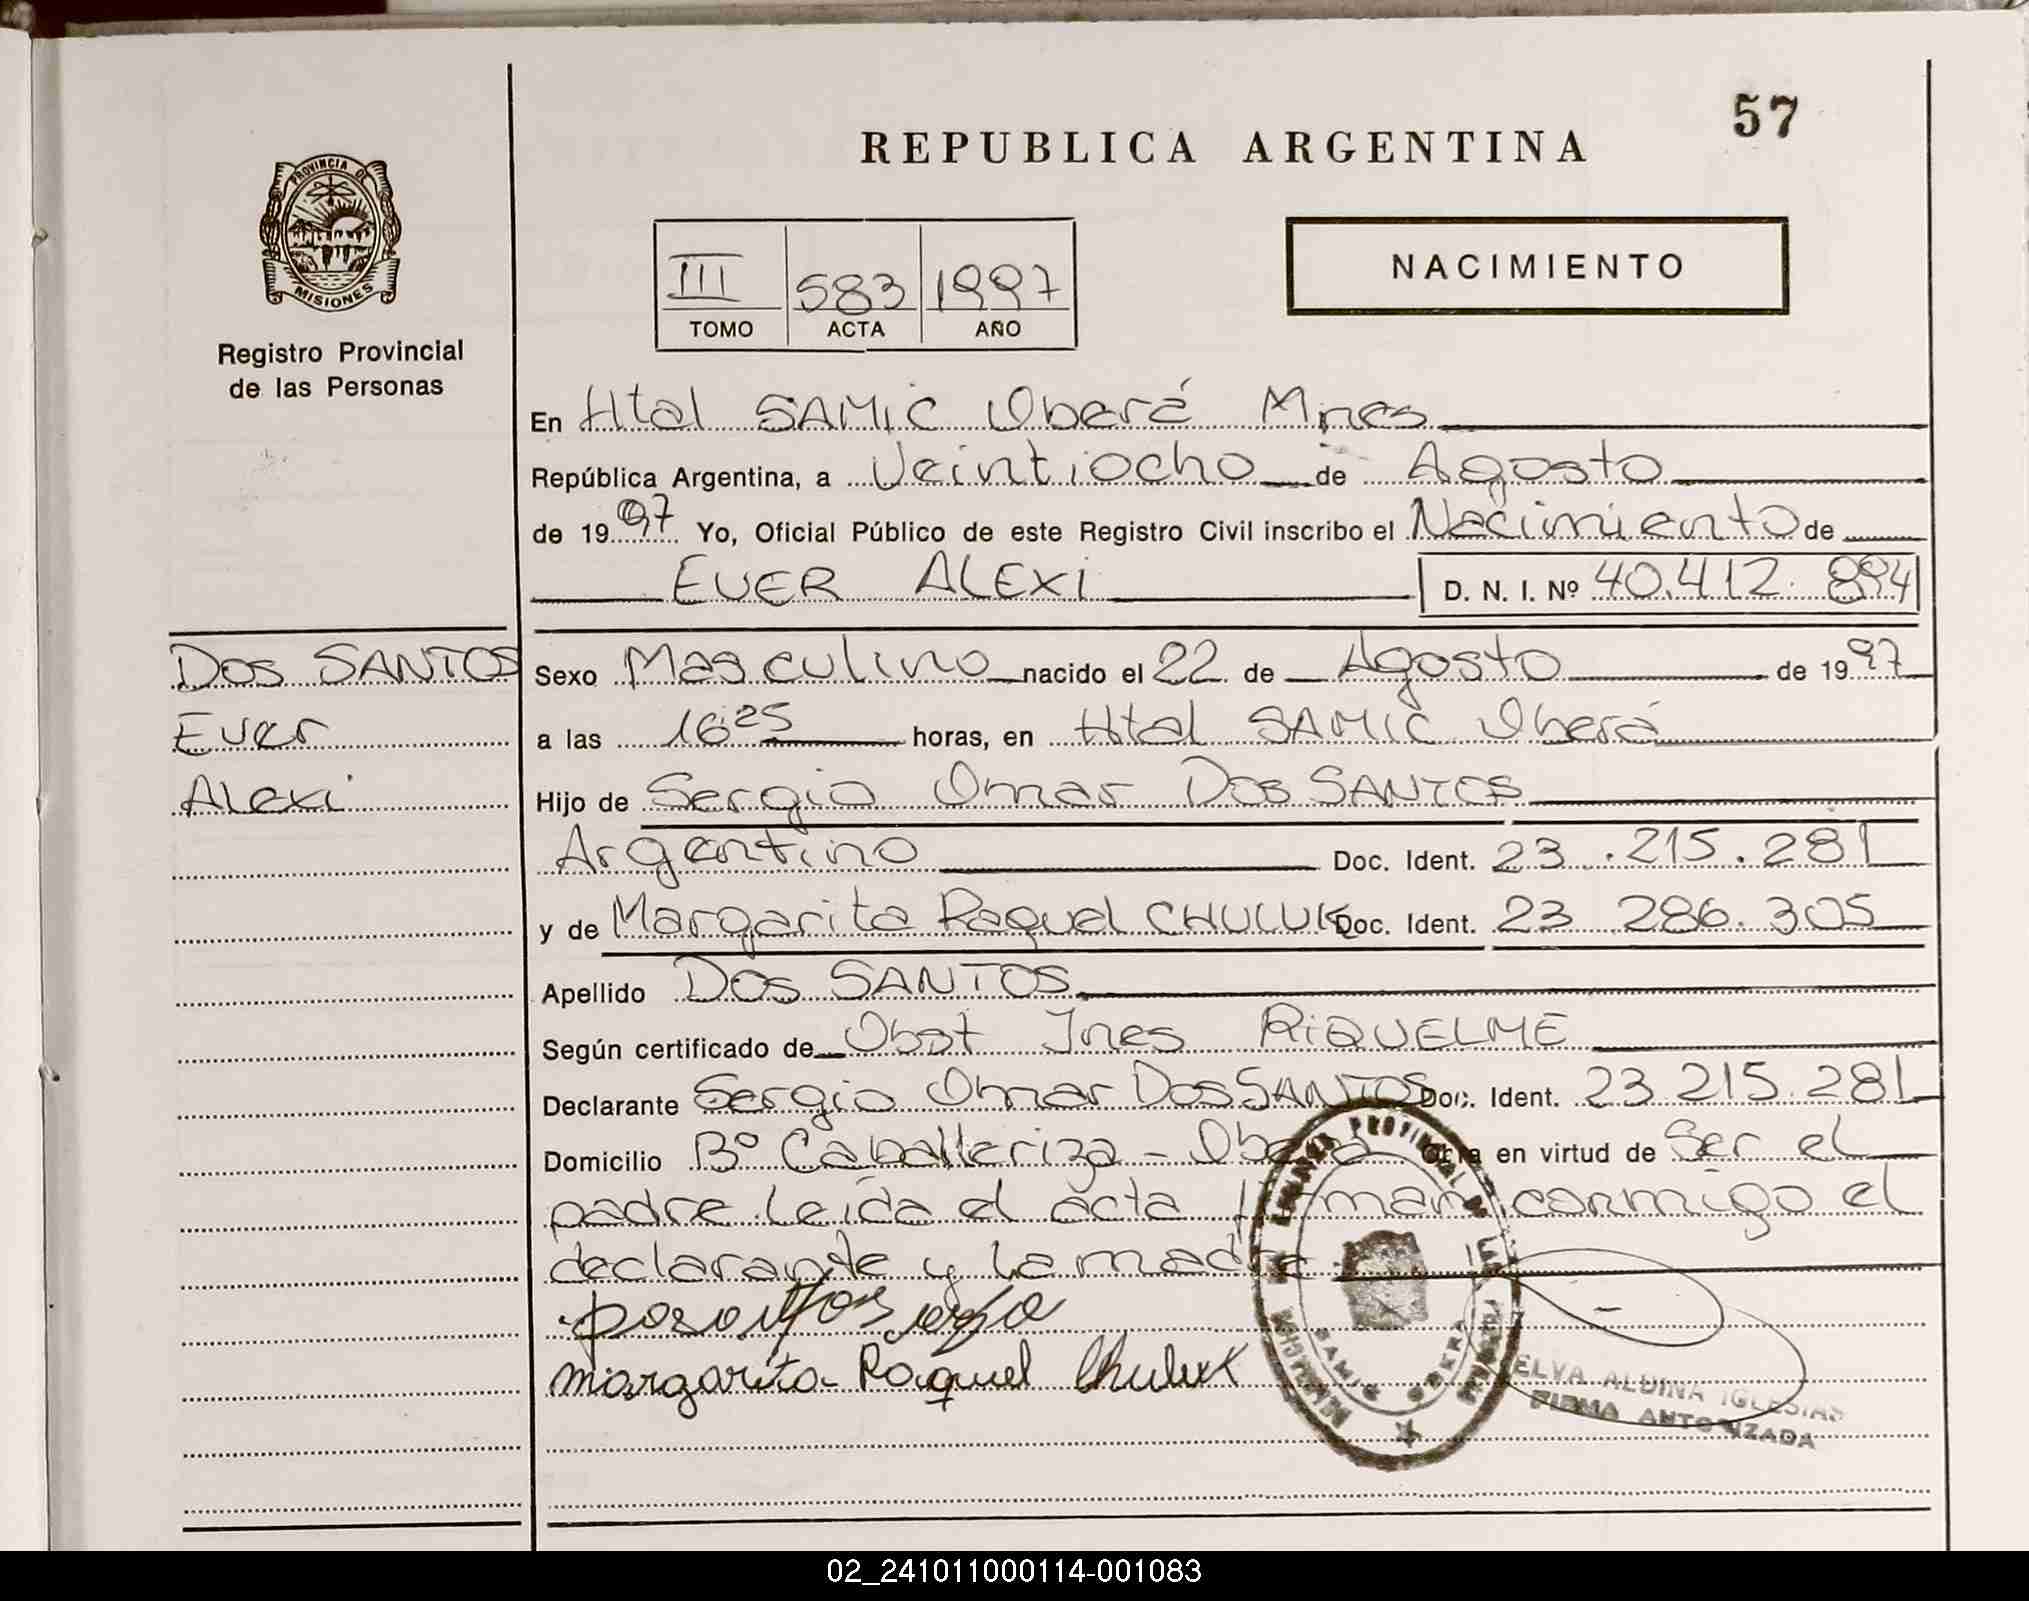 57
REPUBLICA ARGENTINA
PROVINCIA DE
MISIONES
Registro Provincial
de las Personas
III 583 1997
TOMO ACTA AÑO
NACIMIENTO
En Htal SAMIC Oberá Mnes
República Argentina, a Veintiocho de Agosto
de 1997 Yo, Oficial Público de este Registro Civil inscribo el Nacimiento de
EVER ALEXI D. N. I. Nº 40.412.894
DOS SANTOS
Ever
Alexi
Sexo Masculino nacido el 22 de Agosto de 1997
a las 16:25 horas, en Htal SAMIC Oberá
Hijo de Sergio Omar DOS SANTOS
Argentino Doc. Ident. 23.215.281
y de Margarita Raquel CHULUK Doc. Ident. 23 286.305
Apellido DOS SANTOS
Según certificado de Obst Ines RIQUELME
Declarante Sergio Omar DOS SANTOS Doc. Ident. 23 215.281
Domicilio Bº Caballeriza - Obera en virtud de Ser el
padre. Leída el acta firman conmigo el
declarante y la madre
Margarita Raquel Chuluk
SAMIC OBERA
ELVA ALDINA IGLESIAS
FIRMA AUTORIZADA
02_241011000114-001083